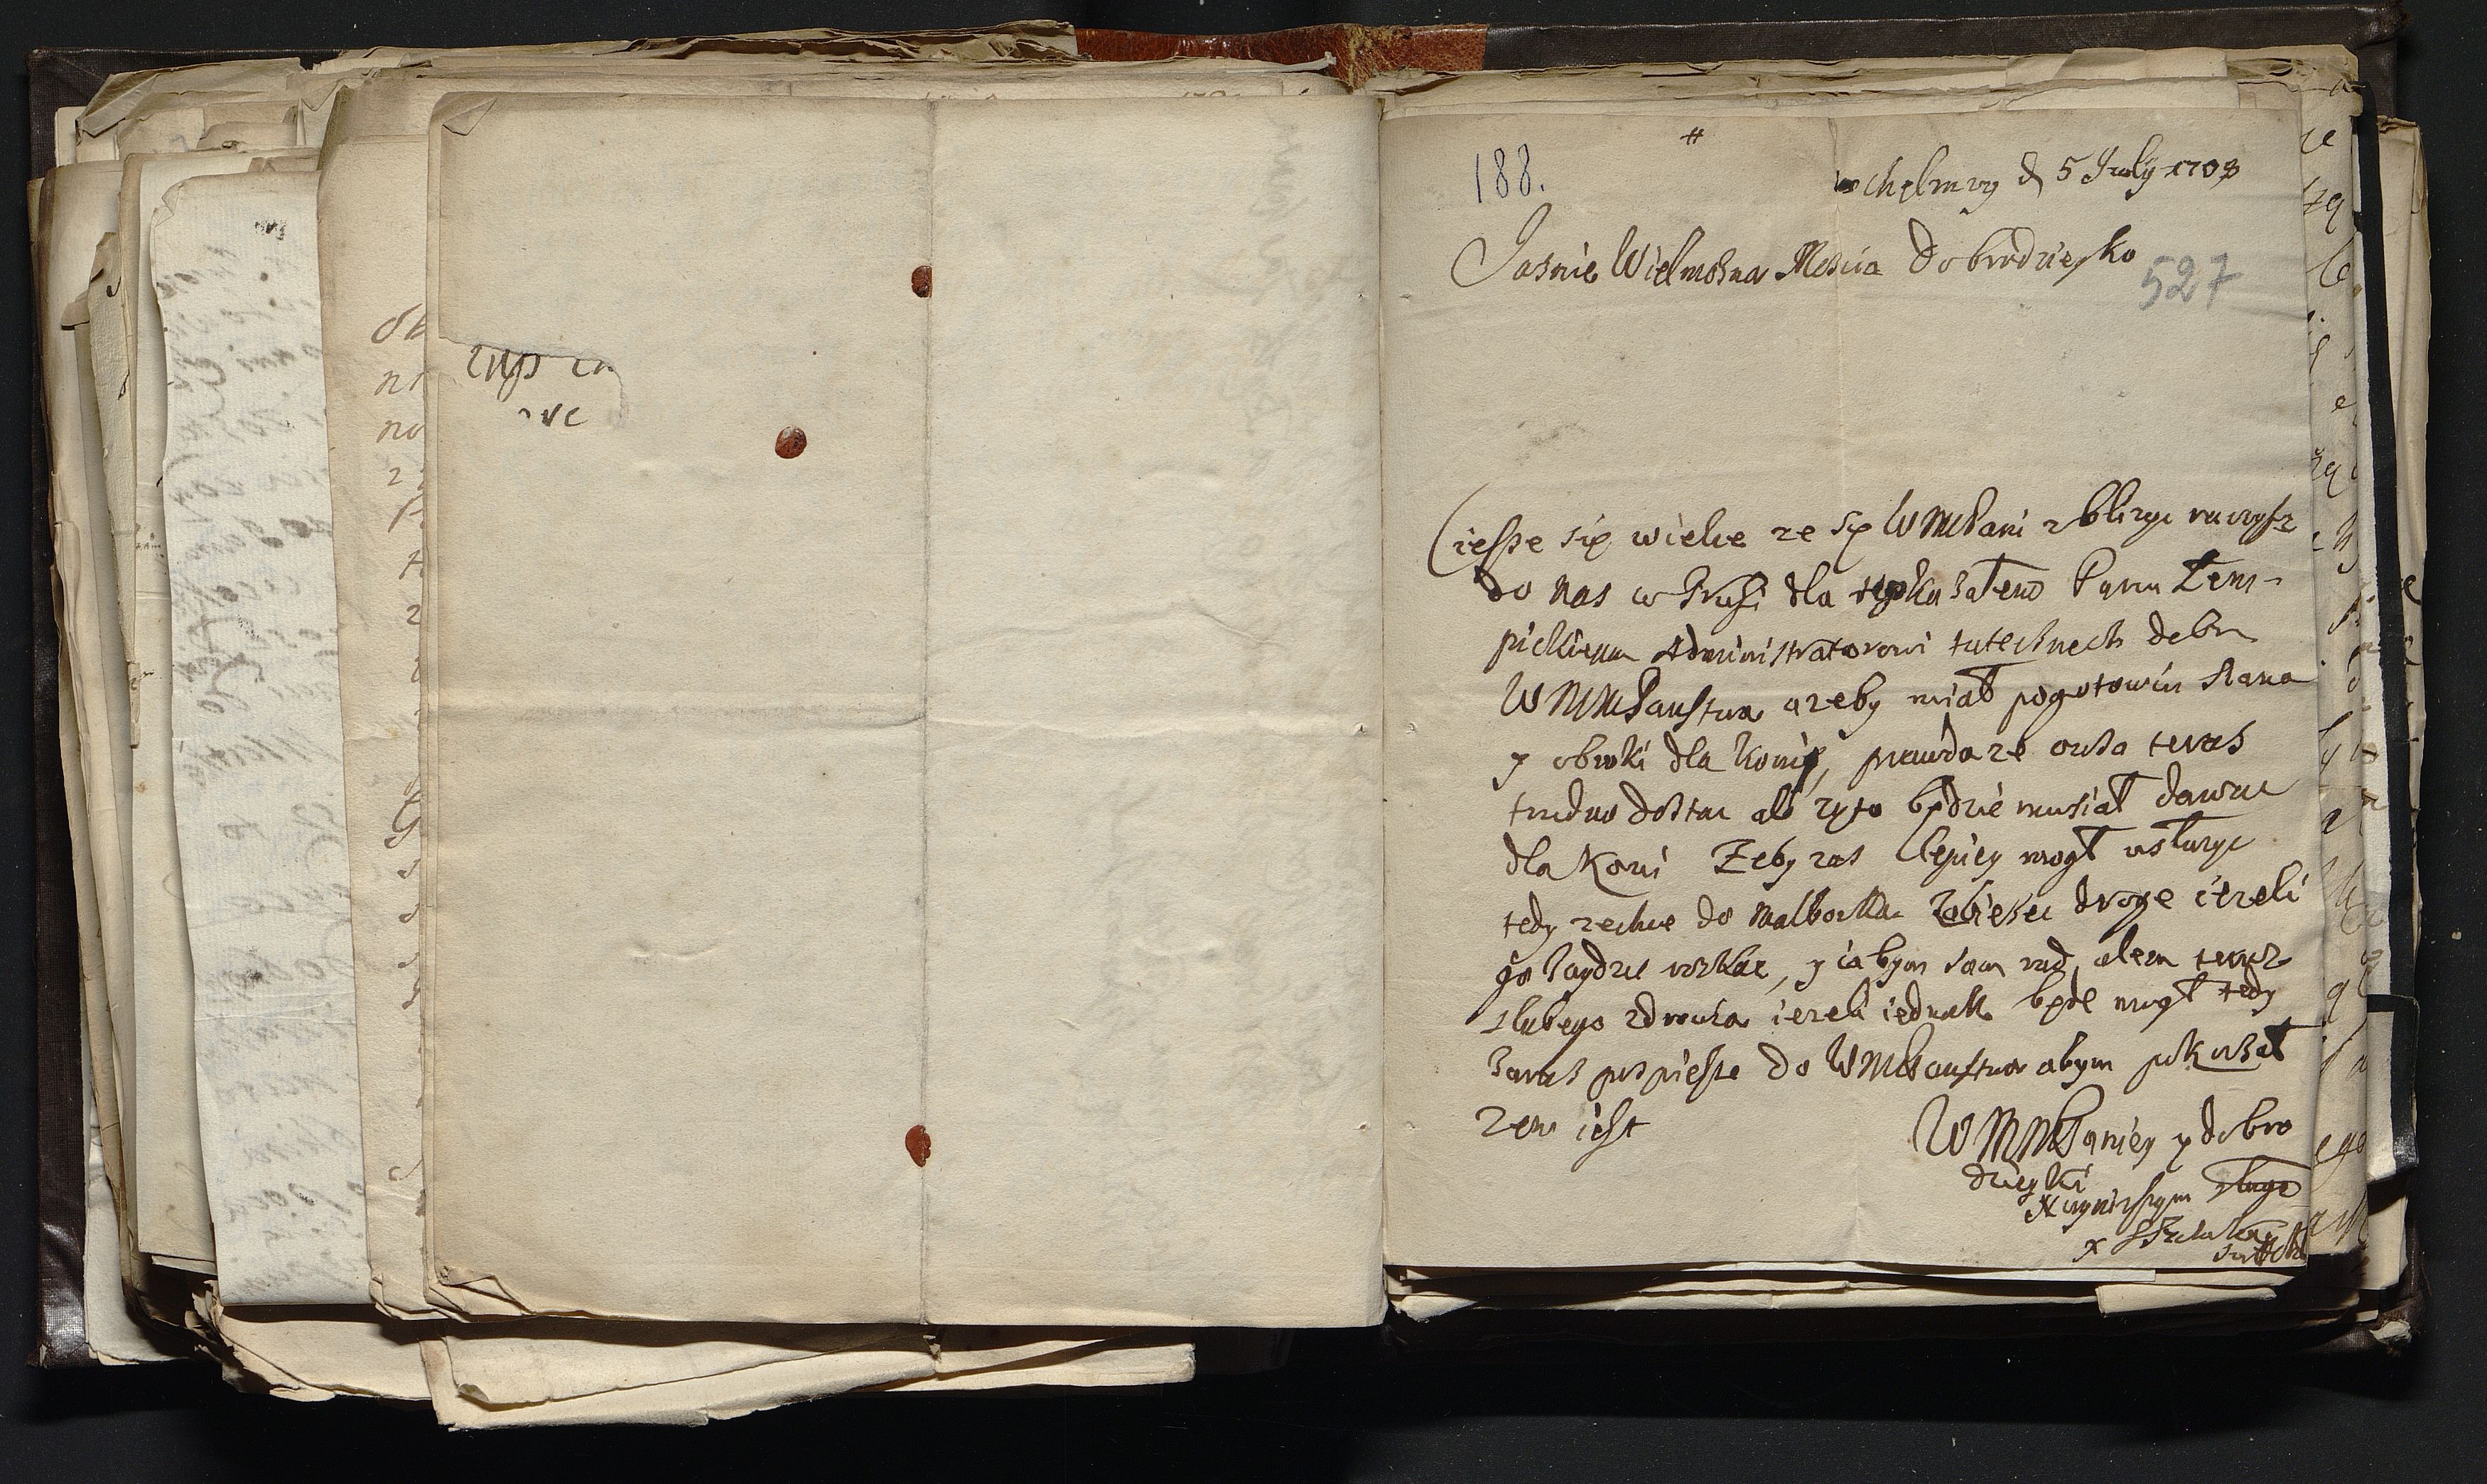 188.
#
w Chełmży d 5 July 1703
Jasnie Wielmożna Mościa Dobrodzieyko
527
Ciesze się wielce ze się WMMPani zblizyc raczysz
do nas w Prusi dla
pickiemu Administratorowi tutecznech debr
WMMPanstwa azeby miał pogotowiu siana
y obroki dla koni, prawda ze owsa teras
trudno dostac ale zyto będzie musiał dawac
dla koni Zeby zas lepiey mogł usłuzyc
tedy zechce do Malborka droge iezeli
go y ia bym sam rad, alem teraz
słabego zdrowia iezeli iednak będe mogł tedy
zaras pospiesze do WMMPanstwa abym pokazał
zem iest
WMMPaniey y dobro
dzieyki
Naynizszym sługą